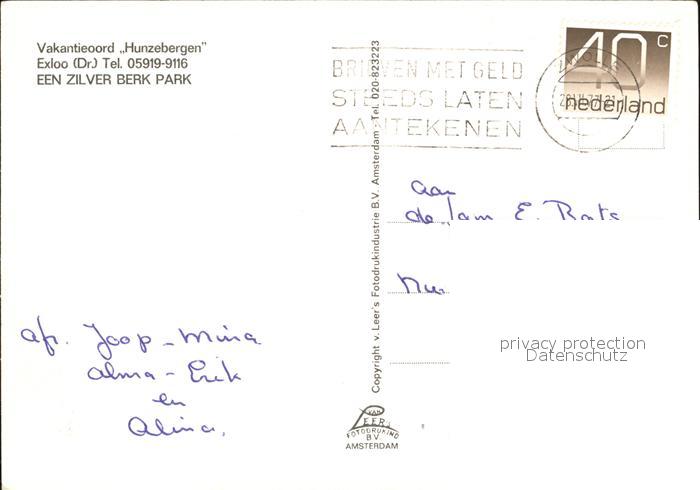 Vakantieoord „Hunzebergen”
Exloo (Dr.) Tel. 05919-9116
EEN ZILVER BERK PARK
BRIEVEN MET GELD
STEEDS LATEN
AANTEKENEN
40 c
nederland
ZWOLLE
Copyright v. Leer's Fotodrukindustrie B.V. Amsterdam - Tel. 020-823223
aan
de fam E.
afz. Joop - Mina
Alma - Erik
en
Alina.
privacy protection
Datenschutz
VAN
LEER's
FOTODRUKIND
B.V.
AMSTERDAM